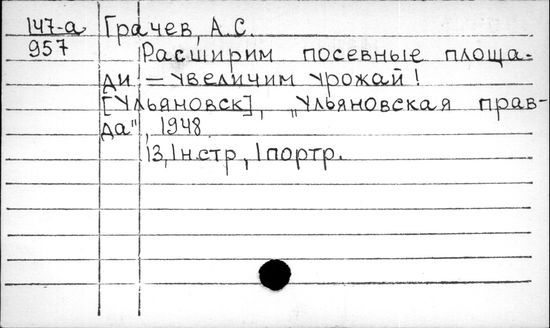 147-а Грачев, А.С.
957 Расширим посевные площа-
ди – увеличим урожай!
[Ульяновск], „Ульяновская прав-
да", 1948.
13, 1 н.стр, 1 портр.